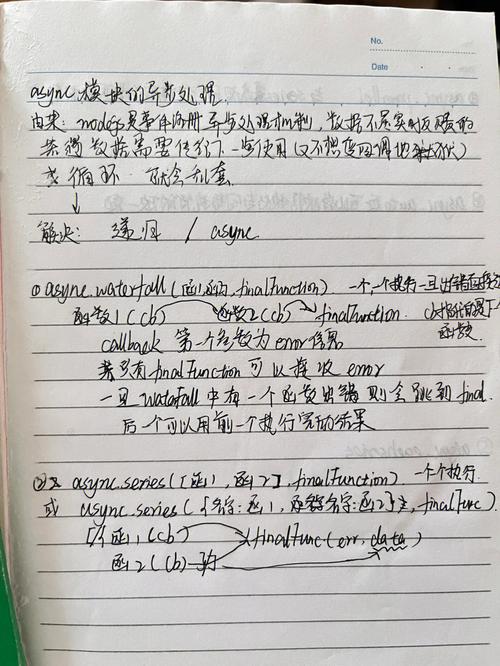 No.
Date
async 模块的异步处理
由来: nodejs是事件机制异步处理机制, 数据不是实时反馈的
若遇数据需要使下一步使用(又不想变回调地狱式)
或循环 就会乱套
↓
解决: 递归 / async
① async.waterfall(函1,函2, finalFunction) 一个,一个执行一旦出错
函数1(cb) 函数2(cb) finalFunction (cb指代的是下个
callback 第一个参数为error信息 函数
若只有finalFunction 可以接收 error
一旦 waterfall 中有一个函数出错 则会 跳到 final.
后一个可以用前一个执行完的结果
② async.series([函1, 函2], finalFunction) 一个个执行
或 async.series({名字:函1, 名字:函2}, finalFunc)
函1(cb) finalFunc(err, data)
函2(cb)